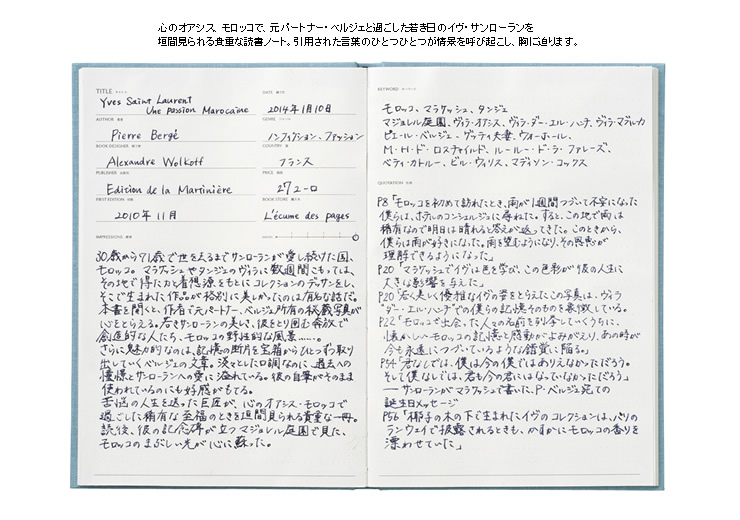 心のオアシス、モロッコで、元パートナー・ベルジェと過ごした若き日のイヴ・サンローランを
垣間見られる貴重な読書ノート。引用された言葉のひとつひとつが情景を呼び起こし、胸に迫ります。
TITLE タイトル
Yves Saint Laurent
Une passion Marocaine
DATE 読了日
2014年1月10日
AUTHOR 著者
Pierre Bergé
GENRE ジャンル
ノンフィクション、ファッション
BOOK DESIGNER 装丁家
Alexandre Wolkoff
COUNTRY 国
フランス
PUBLISHER 出版社
Edition de la Martinière
PRICE 価格
27ユーロ
FIRST EDITION 初版
2010年11月
BOOK STORE 購入店
L'écume des pages
IMPRESSIONS 感想
30歳から71歳で世を去るまでサンローランが愛し続けた国、
モロッコ。マラケシュやタンジェのヴィラに数週間こもっては、
その地で得た力と着想源をもとにコレクションのデッサンをし、
そこで生まれた作品が格別に美しかったのは有名な話だ。
本書を開くと、作者で元パートナー、ベルジェ所有の秘蔵写真が
心をとらえる。若きサンローランの美しさ、彼をとり囲む奔放で
創造的な人たち、モロッコの野性的な風景……。
さらに魅力的なのは、記憶の断片を宝箱からひとつずつ取り
出していくベルジェの文章。淡々とした口調なのに、過去への
憧憬とサンローランへの愛に溢れている。彼の自筆がそのまま
使われているのにも好感がもてる。
苦悩の人生を送った巨匠が、心のオアシス・モロッコで
過ごした稀有な至福のときを垣間見られる貴重な一冊。
読後、彼の記念碑が立つマジョレル庭園で見た、
モロッコのまぶしい光が心に蘇った。
KEYWORD キーワード
モロッコ、マラケッシュ、タンジェ
マジョレル庭園、ヴィラ・オアシス、ヴィラ・ダー・エル・ハンチ、ヴィラ・マブルカ
ピエール・ベルジェ、ゲッティ夫妻、ウォーホール、
M・H・ド・ロスチャイルド、ルールー・ド・ラ・ファレーズ、
ベティ・カトルー、ビル・ウィリス、マディソン・コックス
QUOTATION 引用
P8「モロッコを初めて訪れたとき、雨が1週間つづいて不安になった
僕らは、ホテルのコンシェルジュに尋ねた。すると、この地で雨は
稀有なので明日は晴れると答えが返ってきた。このときから、
僕らは雨が好きになった。雨を望むようになり、その恩恵が
理解できるようになった」
P20「マラケッシュでイヴは色を学び、この色彩が彼の人生に
大きな影響を与えた」
P20「若く美しく優雅なイヴの姿をとらえたこの写真は、ヴィラ
・ダー・エル・ハンチでの僕らの記憶そのものを象徴している。
P22「モロッコで出会った人々の名前を列挙していくうちに、
懐かしいモロッコの記憶と感動がよみがえり、あの時が
今も永遠につづいているような錯覚に陥る。
P54「君なしでは、僕は今の僕ではありえなかっただろう。
そして僕なしでは、君も今の君にはなっていなかっただろう」
—サンローランがマラケッシュで書いた、P・ベルジェ宛ての
誕生日メッセージ
P56「椰子の木の下で生まれたイヴのコレクションは、パリの
ランウェイで披露されるときも、かすかにモロッコの香りを
漂わせていた」